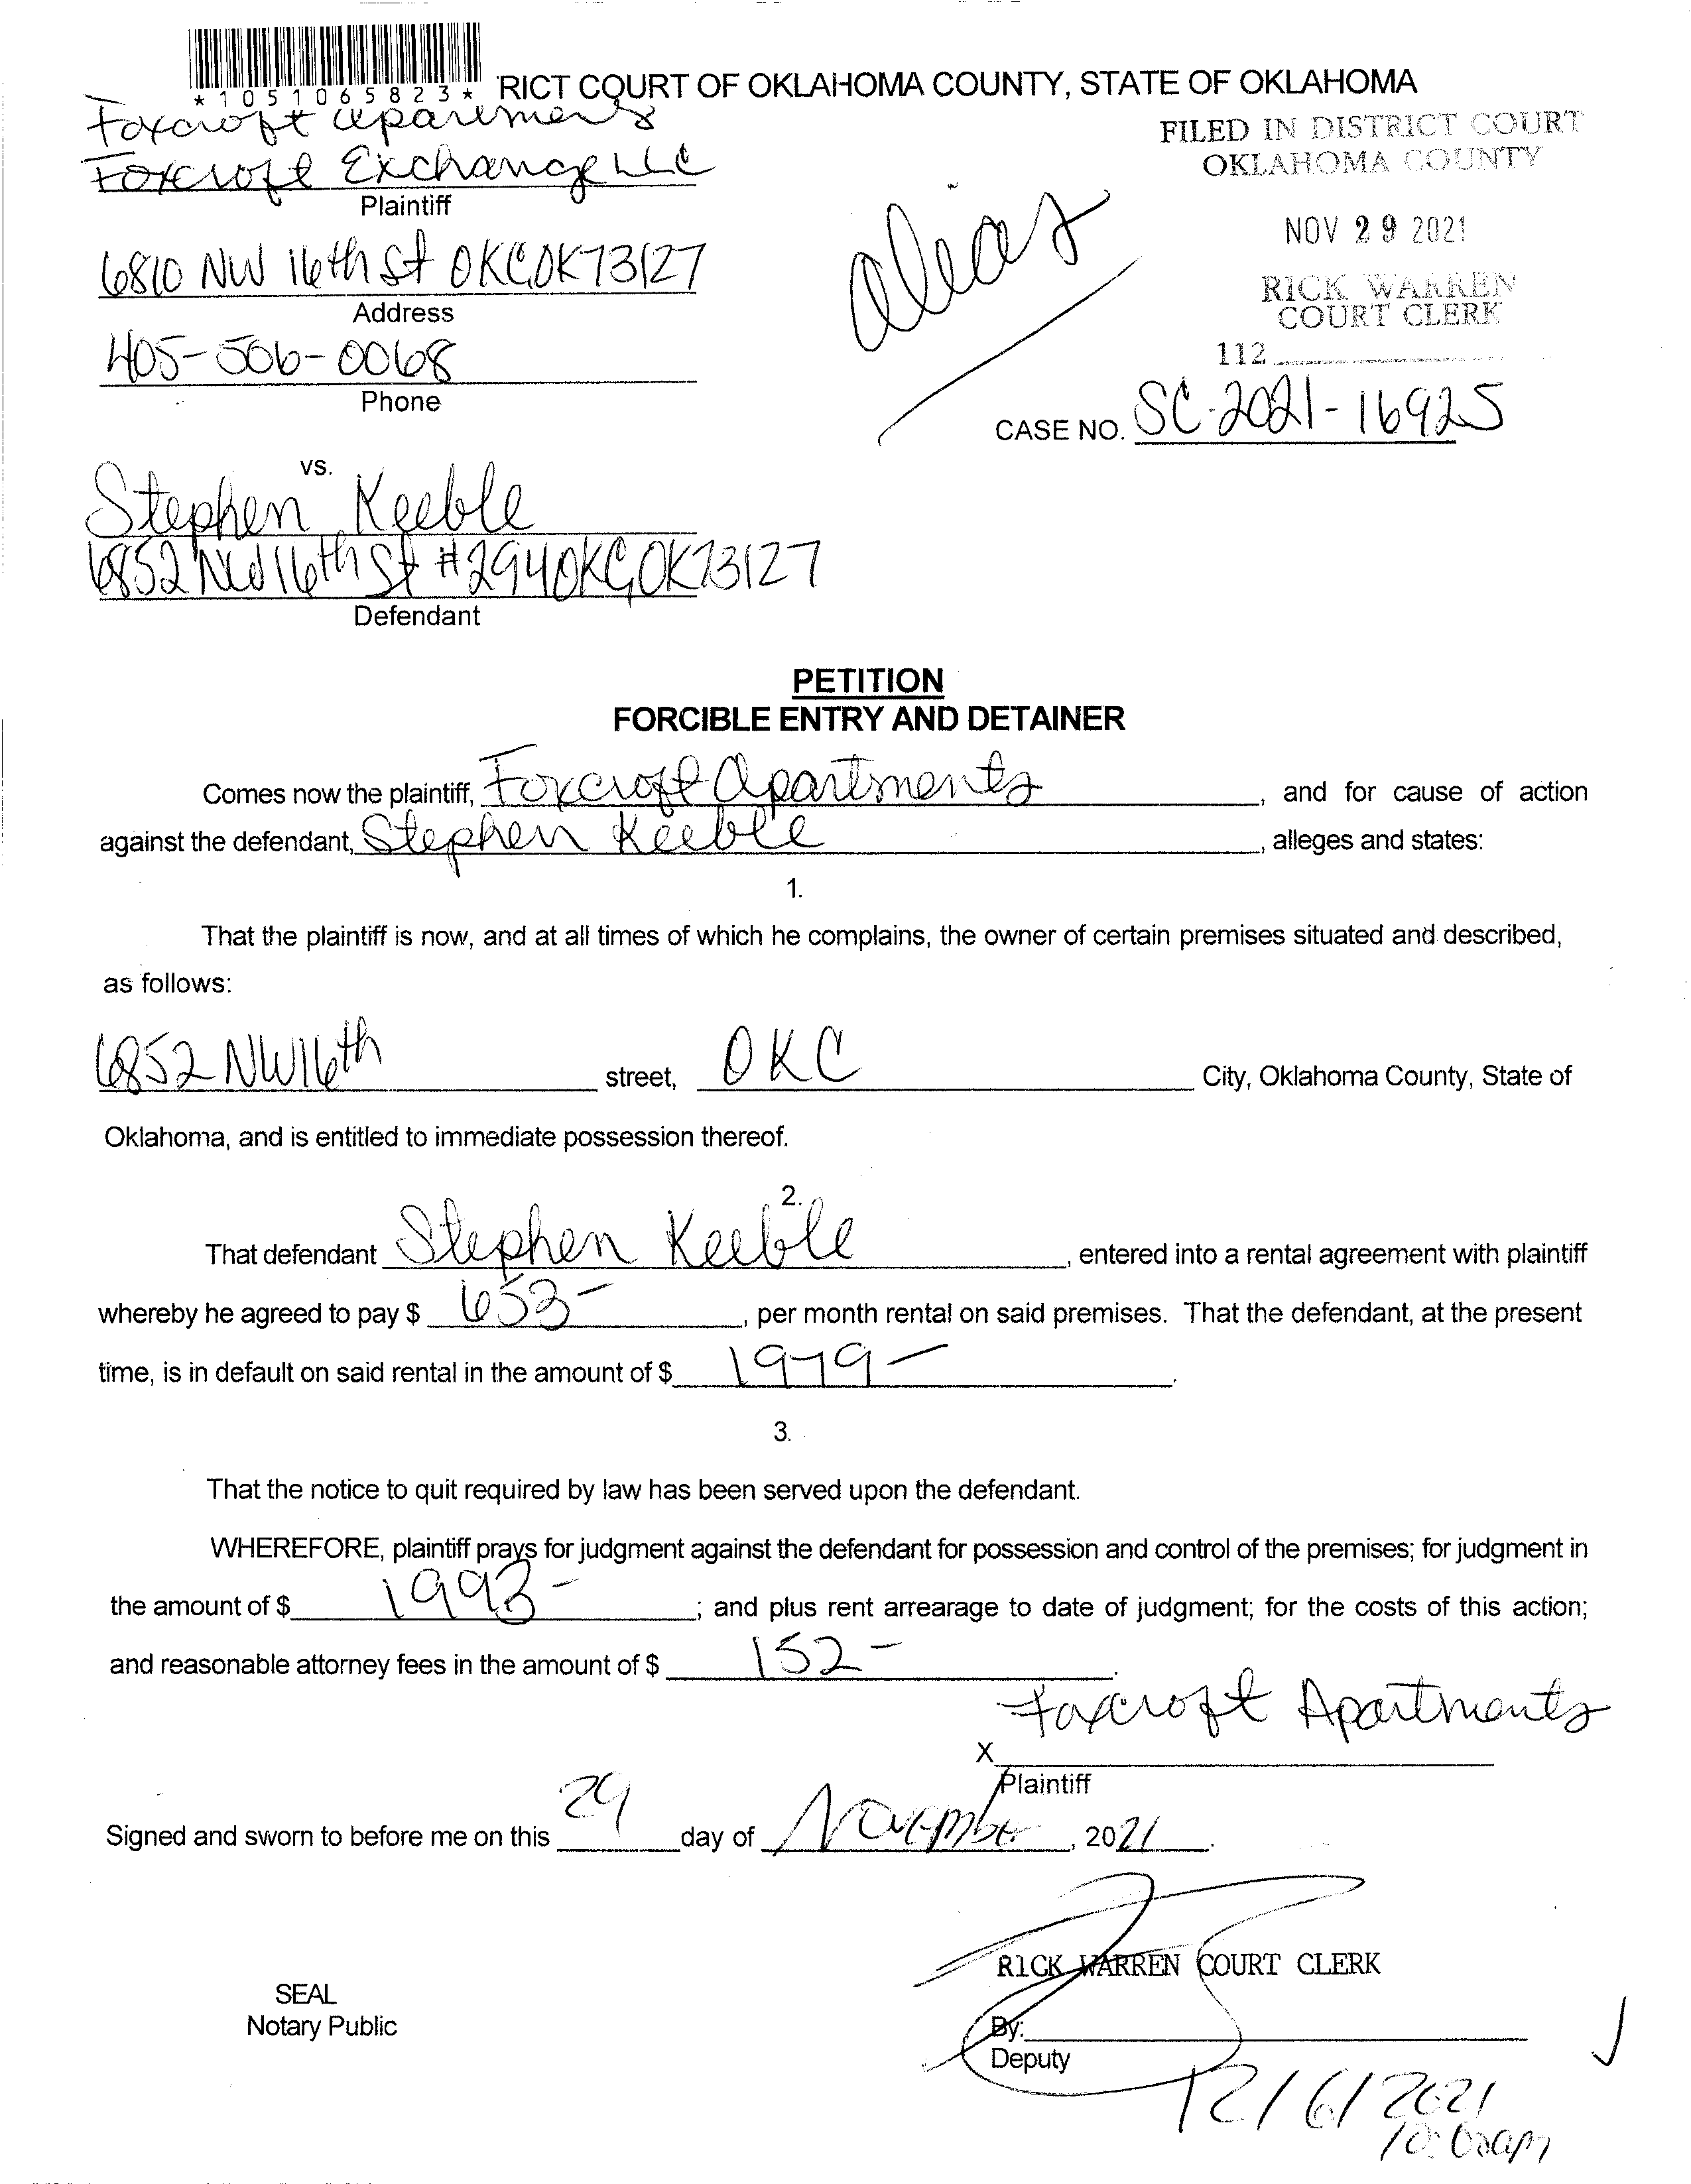 *1051065823* RICT COURT OF OKLAHOMA COUNTY, STATE OF OKLAHOMA
Foxcroft Apartments
FILED IN DISTRICT COURT
OKLAHOMA COUNTY
Foxcroft Exchange LLC
Plaintiff
alias
NOV 29 2021
6810 NW 16th St OKC, OK 73127
Address
RICK WARREN
COURT CLERK
405-506-0068
112
Phone
CASE NO. SC-2021-16925
vs.
Stephen Keeble
6852 NW 16th St #294 OKC, OK 73127
Defendant
PETITION
FORCIBLE ENTRY AND DETAINER
Comes now the plaintiff, Foxcroft Apartments, and for cause of action
against the defendant, Stephen Keeble, alleges and states:
1.
That the plaintiff is now, and at all times of which he complains, the owner of certain premises situated and described,
as follows:
6852 NW 16th street, OKC City, Oklahoma County, State of
Oklahoma, and is entitled to immediate possession thereof.
2.
That defendant Stephen Keeble, entered into a rental agreement with plaintiff
whereby he agreed to pay $ 653-, per month rental on said premises. That the defendant, at the present
time, is in default on said rental in the amount of $ 1979-.
3.
That the notice to quit required by law has been served upon the defendant.
WHEREFORE, plaintiff prays for judgment against the defendant for possession and control of the premises; for judgment in
the amount of $ 1993-; and plus rent arrearage to date of judgment; for the costs of this action;
and reasonable attorney fees in the amount of $ 152-.
Foxcroft Apartments
X
Plaintiff
Signed and sworn to before me on this 29 day of November, 2021.
RICK WARREN COURT CLERK
SEAL
Notary Public
By:
Deputy
12/6/2021
10:00am